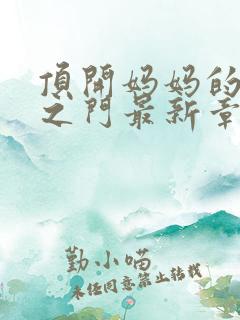 頂開妈妈的
之门最新章
勤小喵
未经同意禁止转载